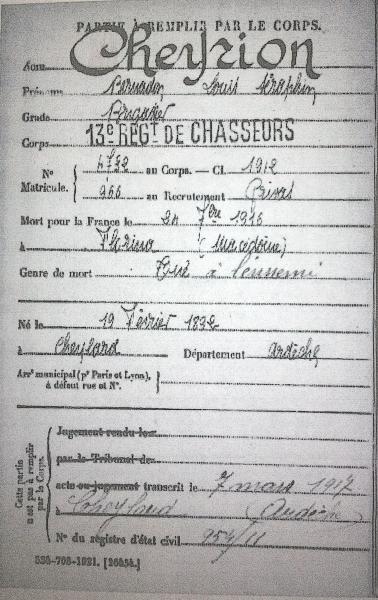 PARTIE À REMPLIR PAR LE CORPS.
Nom Cheyrion
Prénoms Louis Séraphin
Grade Brigadier
Corps 13e RÉGT DE CHASSEURS
No Matricule. { au Corps. — Cl. 1912
966 au Recrutement Privas
Mort pour la France le 24 7bre 1916
à Florina (Macédoine)
Genre de mort Tué à l'ennemi
Né le 19 Février 1892
à Cheylard Département Ardèche
Arrt municipal (pr Paris et Lyon), à défaut rue et No. }
Cette partie n'est pas à remplir par le Corps. {
Jugement rendu le
par le Tribunal de
acte ou jugement transcrit le 7 mars 1917
à Cheylard (Ardèche)
No du registre d'état civil 954/11
535-708-1921. [26434.]